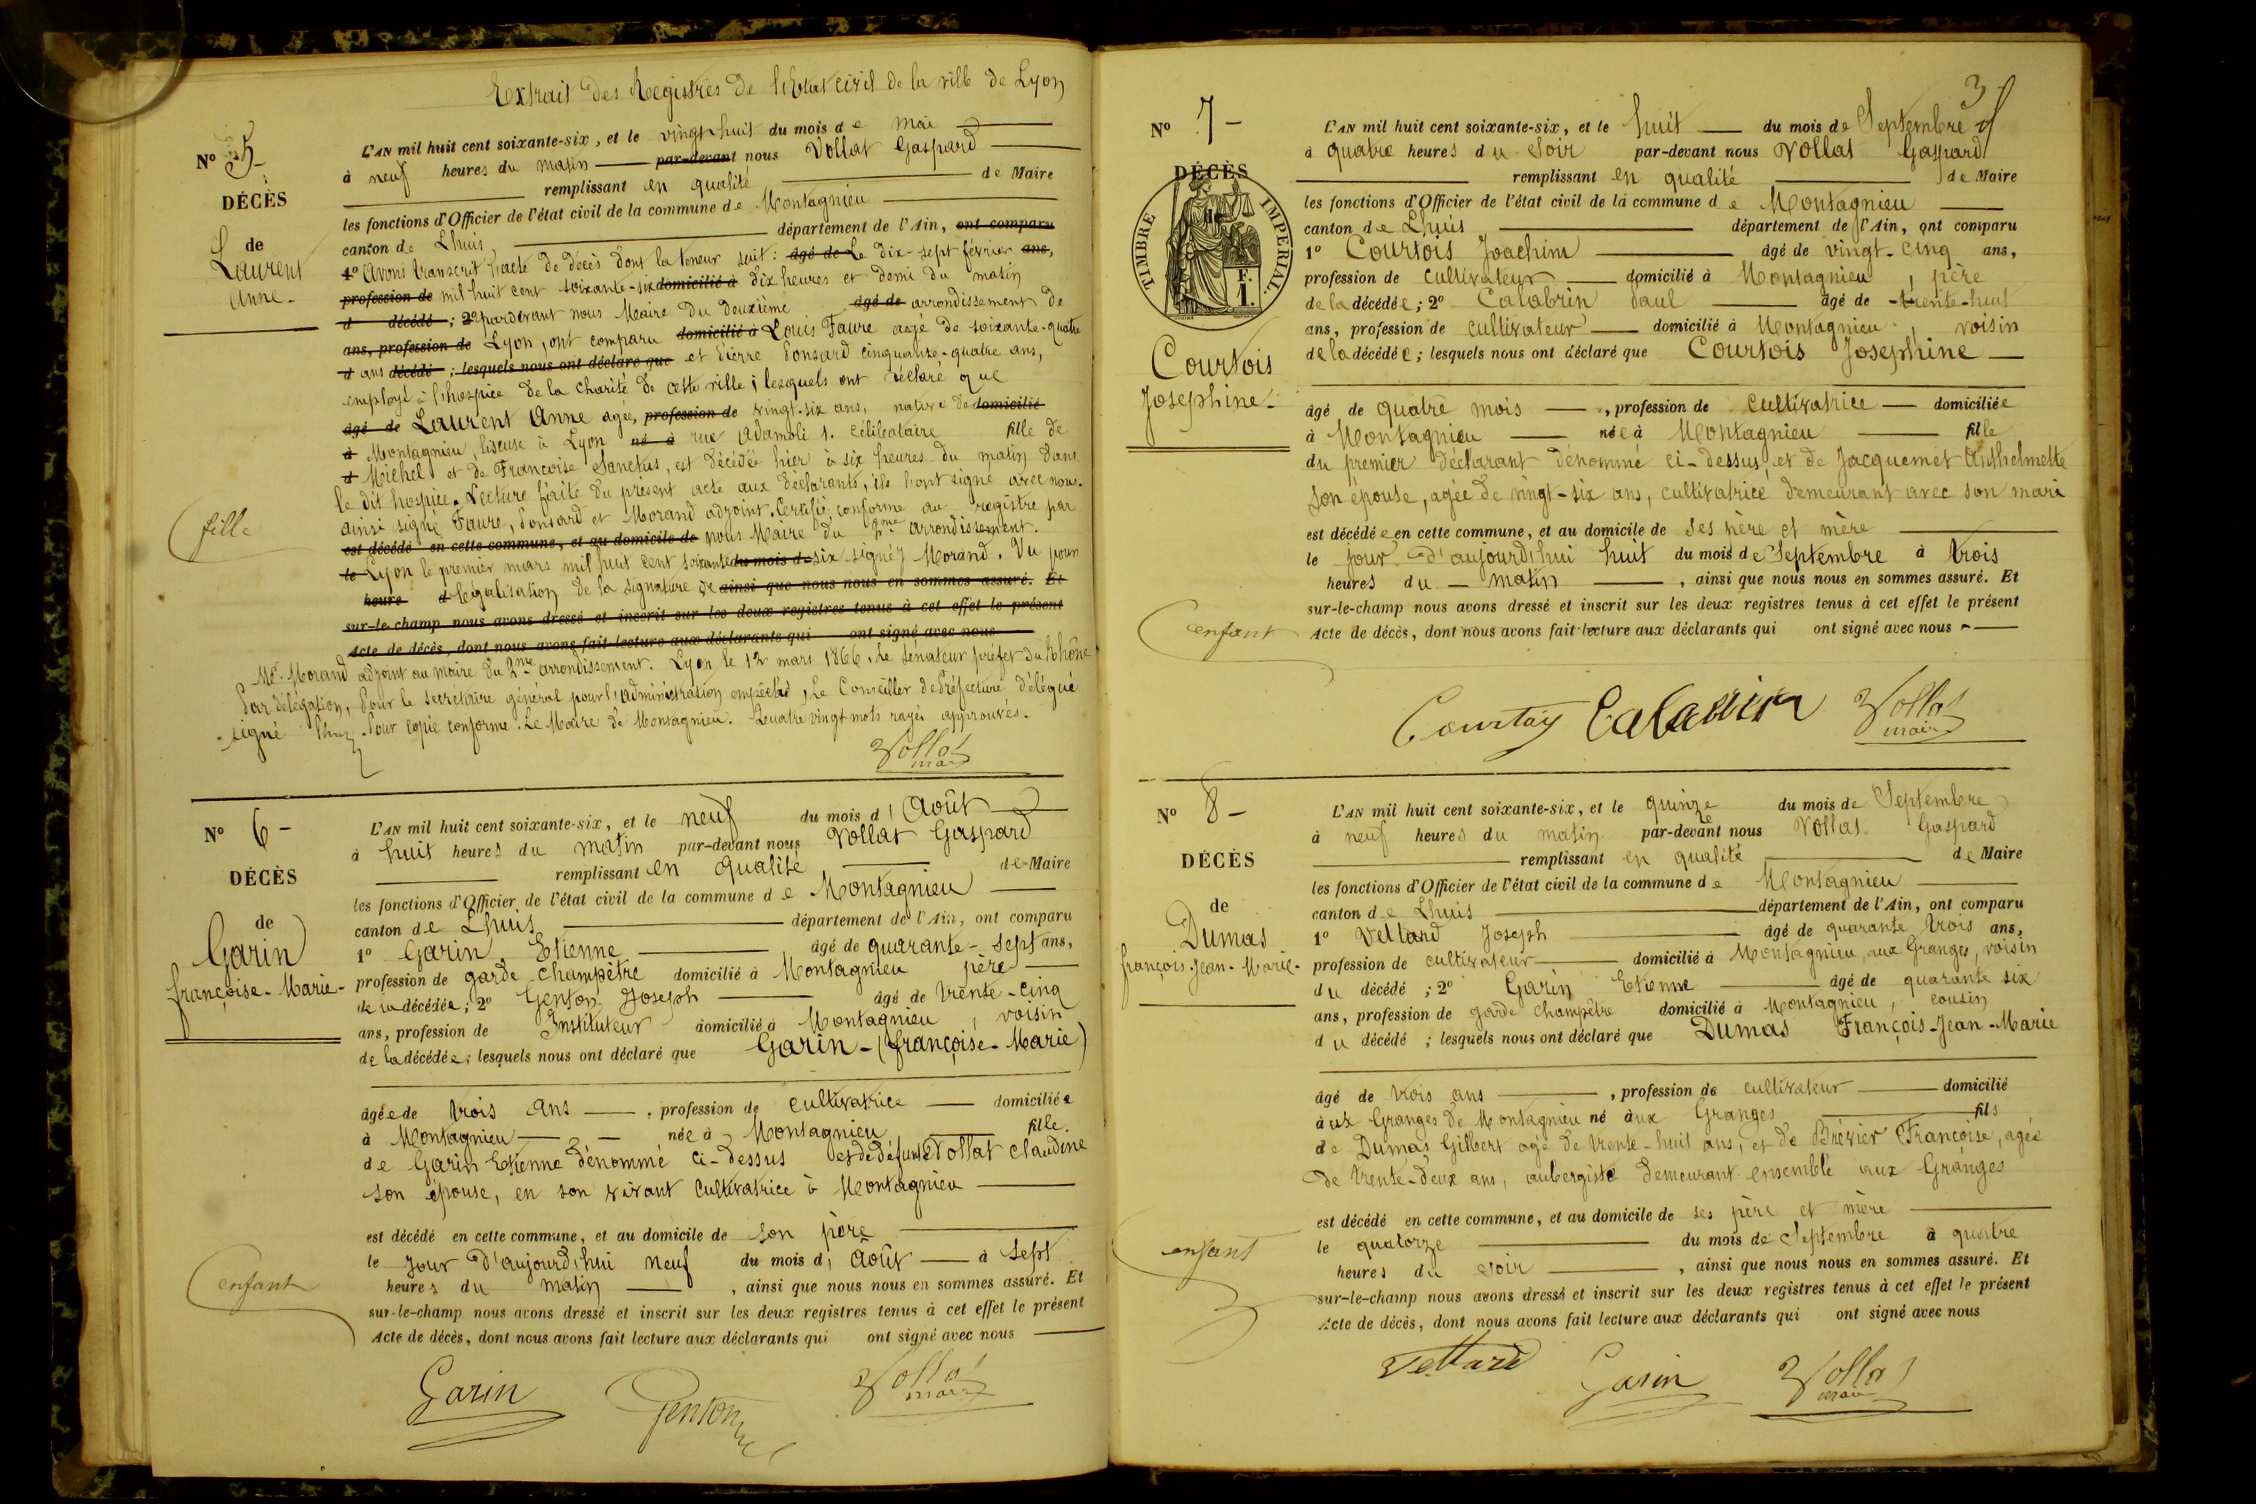 Extrait des Registres de l'Etat civil de la ville de Lyon
N° 5-
DÉCÈS
de
Laurent
Anne-
fille
L'AN mil huit cent soixante-six, et le vingt-huit du mois de Mai
à neuf heures du matin par-devant nous Vollat Gaspard
remplissant en qualité de Maire
les fonctions d'Officier de l'état civil de la commune de Montagnieu
canton de Lhuis département de l'Ain, ont comparu
1° Avons transcrit l'acte de décès dont la teneur suit : âgé de Le dix-sept février ans,
profession de mil huit cent soixante-six domicilié à dix heures et demi du matin
d décédé ; 2° pardevant nous Maire du deuxième âgé de arrondissement de
ans, profession de Lyon, ont comparu domicilié à Louis Faure agé de soixante-quatre
d ans décédé ; lesquels nous ont déclaré que et Pierre Ponsard cinquante-quatre ans,
employé à l'hospice de la charité de cette ville ; lesquels ont déclaré que
âgé de Laurent Anne agée, profession de vingt-six ans, native de domicilié
à Montagnieu, liseuse à Lyon né à rue Adamoli 1. célibataire fille de
d Michel et de Françoise Sanctus, est décédée hier à six heures du matin dans
le dit hospice. Lecture faite du présent acte aux déclarants, ils l'ont signé avec nous.
ainsi signé Faure, Ponsard et Morand adjoint. Certifié conforme au registre par
est décédé en cette commune, et au domicile de nous Maire du 2me arrondissement.
le Lyon le premier mars mil huit cent soixante du mois de six signé Morand. Vu pour
heure d légalisation de la signature de ainsi que nous nous en sommes assuré. Et
sur-le-champ nous avons dressé et inscrit sur les deux registres tenus à cet effet le présent
Acte de décès, dont nous avons fait lecture aux déclarants qui ont signé avec nous
Mr Morand adjoint au maire du 2me arrondissement. Lyon le 12 mars 1866. Le Sénateur préfet du Rhône
Par délégation, Pour le secrétaire général pour l'administration empêché, Le Conseiller de Préfecture délégué
signé . Pour copie conforme. Le Maire de Montagnieu. Quatre vingt mots rayés approuvés.
Vollat
maire
N° 6-
DÉCÈS
de
Garin
françoise-Marie-
enfant
L'AN mil huit cent soixante-six, et le neuf du mois d'Août
à huit heures du matin par-devant nous Vollat Gaspard
remplissant en qualité de Maire
les fonctions d'Officier de l'état civil de la commune de Montagnieu
canton de Lhuis département de l'Ain, ont comparu
1° Garin Etienne âgé de quarante-sept ans,
profession de garde champêtre domicilié à Montagnieu père
de la décédée ; 2° Genton Joseph âgé de trente-cinq
ans, profession de Instituteur domicilié à Montagnieu, voisin
de la décédée ; lesquels nous ont déclaré que Garin-(françoise-Marie)
âgée de trois ans, profession de cultivatrice domiciliée
à Montagnieu née à Montagnieu fille
de Garin Etienne dénommé ci-dessus et de défunte Vollat claudine
son épouse, en son vivant cultivatrice à Montagnieu
est décédé en cette commune, et au domicile de son père
le jour d'aujourd'hui neuf du mois d'août à sept
heures du matin, ainsi que nous nous en sommes assuré. Et
sur-le-champ nous avons dressé et inscrit sur les deux registres tenus à cet effet le présent
Acte de décès, dont nous avons fait lecture aux déclarants qui ont signé avec nous
Garin Genton Vollat
maire
3
N° 7-
DÉCÈS
de
TIMBRE IMPÉRIAL
F.
1.
Courtois
Josephine-
enfant
L'AN mil huit cent soixante-six, et le huit du mois de Septembre
à quatre heures du Soir par-devant nous Vollat Gaspard
remplissant en qualité de Maire
les fonctions d'Officier de l'état civil de la commune de Montagnieu
canton de Lhuis département de l'Ain, ont comparu
1° Courtois Joachim âgé de vingt-cinq ans,
profession de cultivateur domicilié à Montagnieu, père
de la décédée ; 2° Calabrin Paul âgé de trente-huit
ans, profession de cultivateur domicilié à Montagnieu, voisin
de la décédée ; lesquels nous ont déclaré que Courtois Josephine
âgé de quatre mois, profession de cultivatrice domiciliée
à Montagnieu née à Montagnieu fille
du premier déclarant dénommé ci-dessus, et de Jacquemet Anthelmette
son épouse, agée de vingt-six ans, cultivatrice demeurant avec son mari
est décédée en cette commune, et au domicile de ses père et mère
le jour d'aujourd'hui huit du mois de Septembre à trois
heures du matin, ainsi que nous nous en sommes assuré. Et
sur-le-champ nous avons dressé et inscrit sur les deux registres tenus à cet effet le présent
Acte de décès, dont nous avons fait lecture aux déclarants qui ont signé avec nous
Courtoy Calabrin Vollat
maire
N° 8-
DÉCÈS
de
Dumas
françois-Jean-Marie-
enfant
L'AN mil huit cent soixante-six, et le quinze du mois de Septembre
à neuf heures du matin par-devant nous Vollat Gaspard
remplissant en qualité de Maire
les fonctions d'Officier de l'état civil de la commune de Montagnieu
canton de Lhuis département de l'Ain, ont comparu
1° Vettard Joseph âgé de quarante trois ans,
profession de cultivateur domicilié à Montagnieu, aux Granges, voisin
du décédé ; 2° Garin Etienne âgé de quarante six
ans, profession de garde champêtre domicilié à Montagnieu, cousin
du décédé ; lesquels nous ont déclaré que Dumas François-Jean-Marie
âgé de trois ans, profession de cultivateur domicilié
aux Granges de Montagnieu né aux Granges fils
de Dumas Gilbert agé de trente-huit ans, et de Brévier Françoise, agée
de trente-deux ans, aubergiste demeurant ensemble aux Granges
est décédé en cette commune, et au domicile de ses père et mère
le quatorze du mois de Septembre à quatre
heures du soir, ainsi que nous nous en sommes assuré. Et
sur-le-champ nous avons dressé et inscrit sur les deux registres tenus à cet effet le présent
Acte de décès, dont nous avons fait lecture aux déclarants qui ont signé avec nous
Vettard Garin Vollat
maire